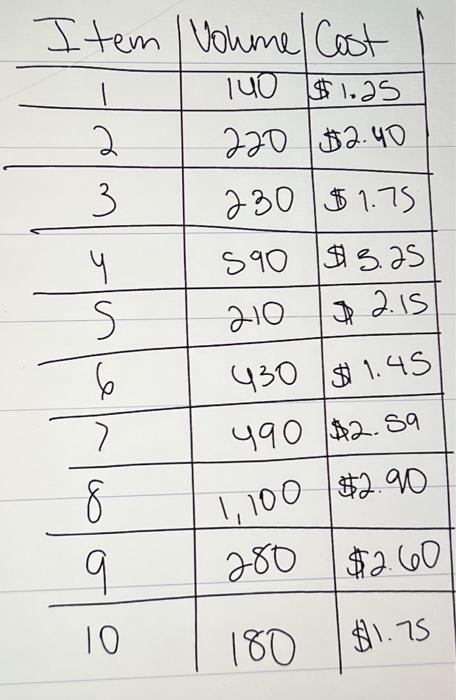 Item Volume Cost
1 140 $1.25
2 220 $2.40
3 230 $1.75
4 590 $3.25
5 210 $2.15
6 430 $1.45
7 490 $2.59
8 1,100 $2.90
9 280 $2.60
10 180 $1.75